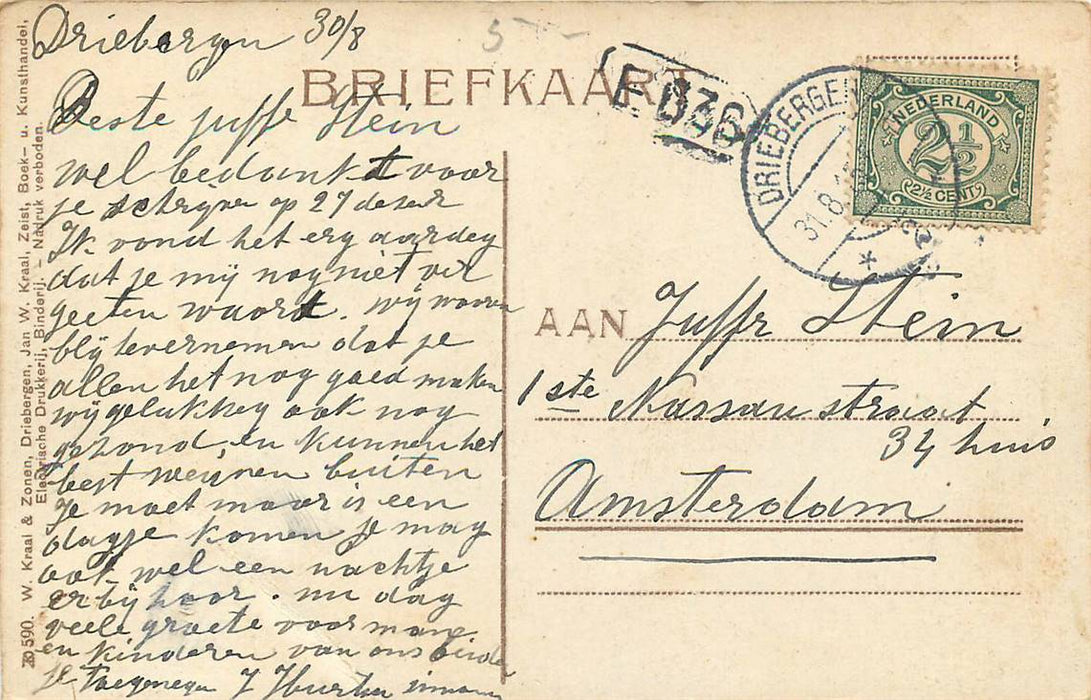 Driebergen 30/8
BRIEFKAART
Beste juffr Stein
wel bedankt voor
je schrijven op 27 dezer
Ik vond het erg aardeg
dat je mij nog niet ver
geeten waart. wij waaren
blij te vernemen dat je
allen het nog goed maken
wij gelukkeg ook nog
gezond en kunnen het
best weijnen buiten
Je moet maar is een
dagje komen je mag
ook wel een nachtje
erbij hoor. nu dag
veele groete voor man
en kinderen van ons beide
je toegenegen J
20 590. W. Kraal & Zonen, Driebergen, Jan W. Kraal, Zeist, Boek- u. Kunsthandel,
Electrische Drukkerij, Binderij. — Nadruk verboden.
DRIEBERGEN
31.8.
NEDERLAND
2½
2½ CENT
AAN Juffr Stein
1ste Nassau straat
34 huis
Amsterdam